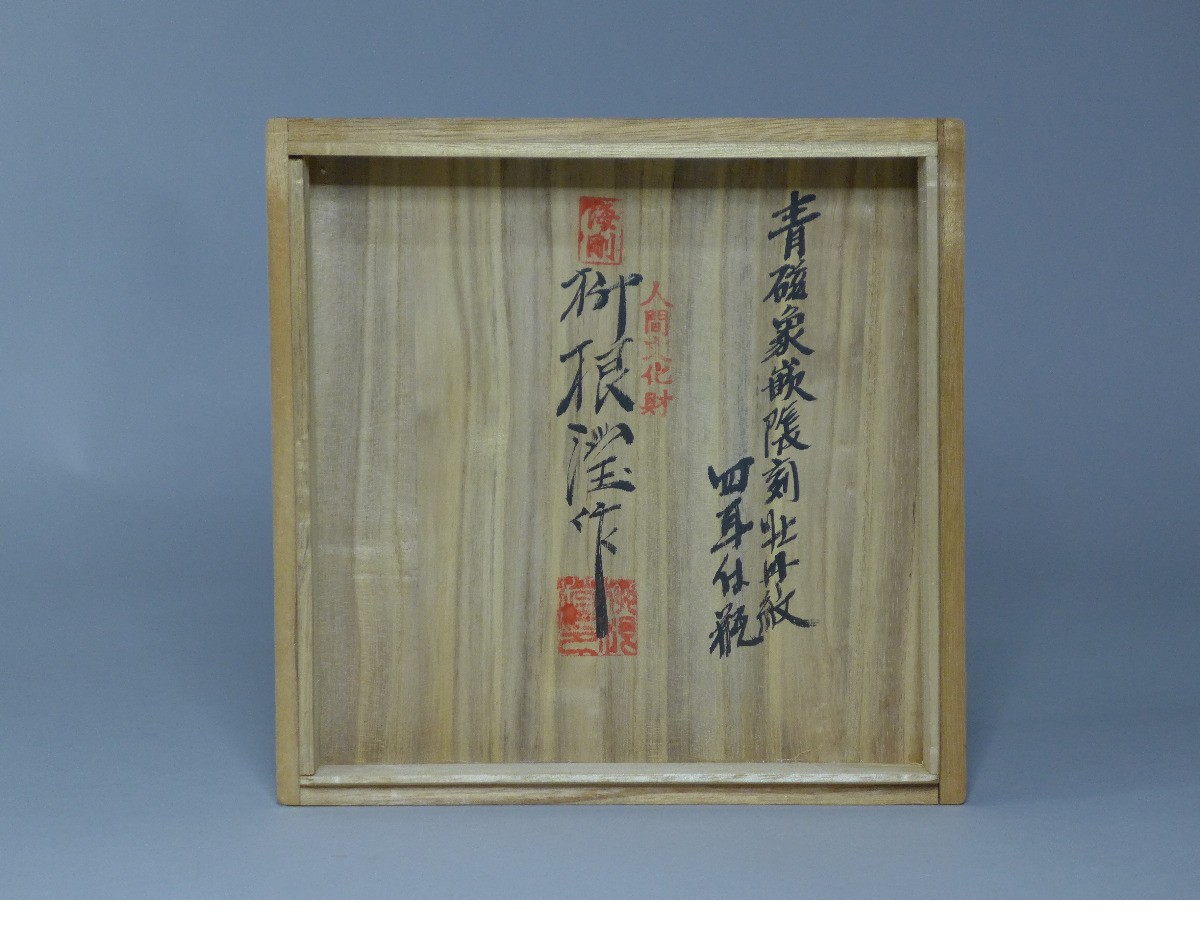 青磁象嵌陰刻牡丹紋
四耳付瓶
人間文化財
海剛
柳根瀅作